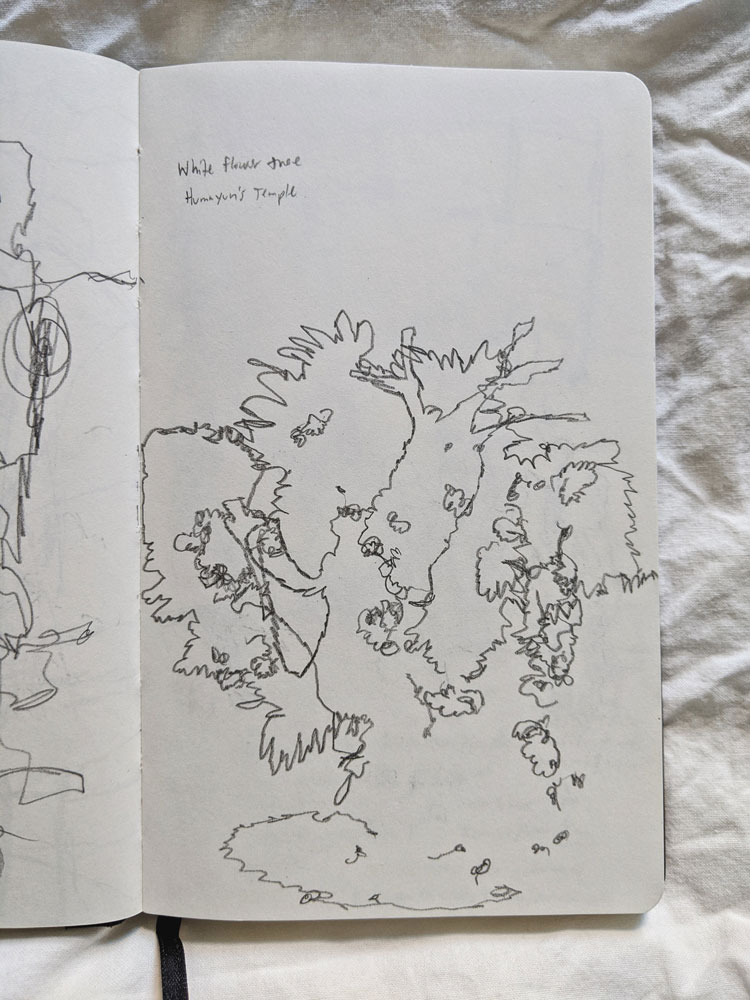 White flower tree
Humayun's Temple